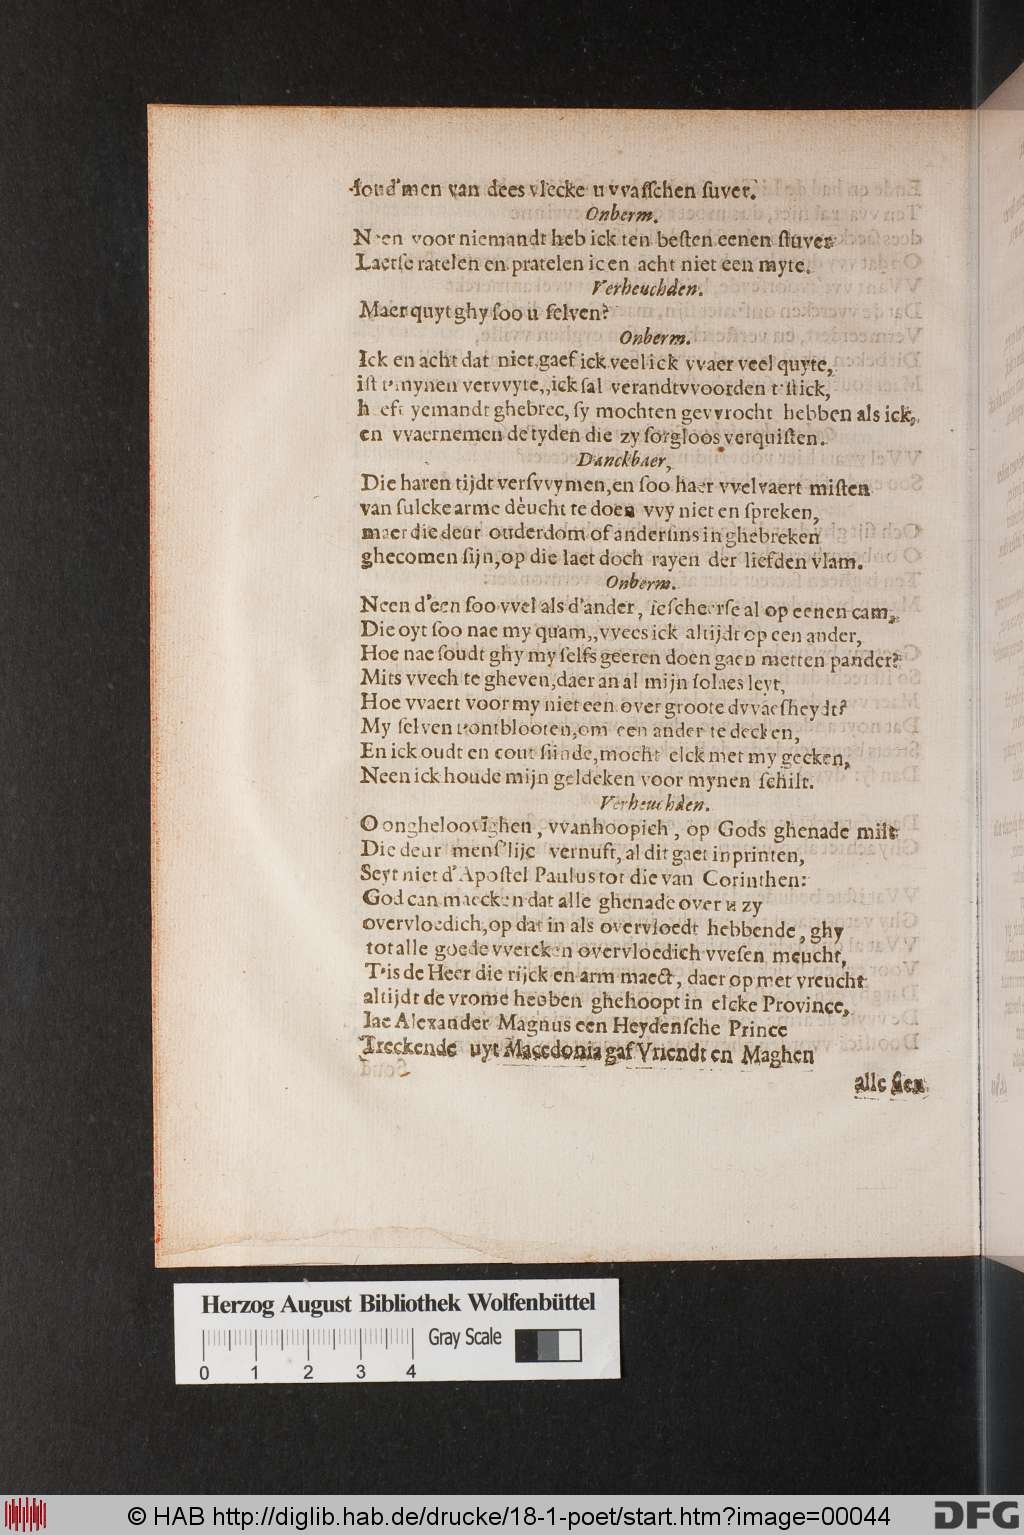 soud'men van dees vlecke u vvasschen suver.
Onberm.
Neen voor niemandt heb ick ten besten eenen stuver
Laetse ratelen en pratelen ic en acht niet een myte.
Verheuchden.
Maer quyt ghy soo u selven?
Onberm.
Ick en acht dat niet, gaef ick veel ick vvaer veel quyte,
ist t'mynen vervvyte,, ick sal verandtvvoorden t'stick,
heeft yemandt ghebrec, sy mochten gevvrocht hebben als ick,
en vvaernemen de tyden die zy sorgloos verquisten.
Danckbaer,
Die haren tijdt versvvymen, en soo haer vvelvaert misten
van sulcke arme dêucht te doen vvy niet en spreken,
maer die deur ouderdom of andersins in ghebreken
ghecomen sijn, op die laet doch rayen der liefden vlam.
Onberm.
Neen d'een soo vvel als d'ander, ic scheerse al op eenen cam,
Die oyt soo nae my quam,, vvees ick altijdt op een ander,
Hoe nae soudt ghy my selfs geeren doen gaen metten pander?
Mits vvech te gheven, daer an al mijn solaes leyt,
Hoe vvaert voor my niet een over groote dvvaesheydt?
My selven t'ontblooten, om een ander te decken,
En ick oudt en cout siinde, mocht elck met my gecken,
Neen ick houde mijn geldeken voor mynen schilt.
Verheuchden.
O ongheloovighen, vvanhoopich, op Gods ghenade milt
Die deur mens'lijc vernuft, al dit gaet inprinten,
Seyt niet d'Apostel Paulus tot die van Corinthen:
God can maecken dat alle ghenade over u zy
overvloedich, op dat in als overvloedt hebbende, ghy
tot alle goede vvercken overvloedich vvesen meucht,
T'is de Heer die rijck en arm maect, daer op met vreucht
altijdt de vrome hebben ghehoopt in elcke Province,
Iae Alexander Magnus een Heydensche Prince
Treckende uyt Macedonia gaf Vriendt en Maghen
alle
Herzog August Bibliothek Wolfenbüttel
Gray Scale
0 1 2 3 4
© HAB http://diglib.hab.de/drucke/18-1-poet/start.htm?image=00044
DFG